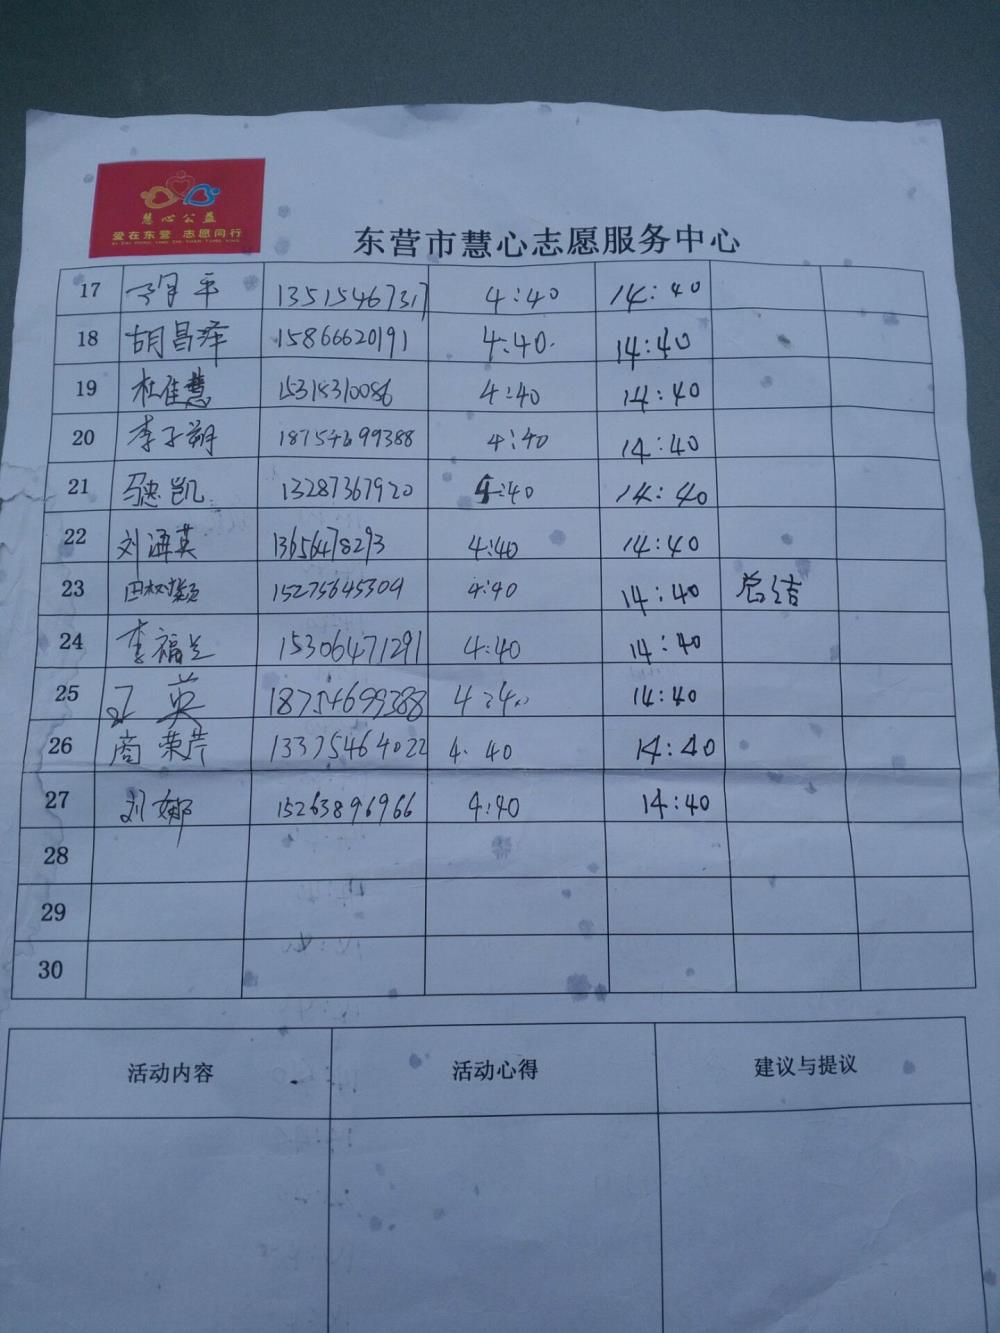 慧心公益
爱在东营 志愿同行
东营市慧心志愿服务中心
17 平 13515467317 4:40 14:40
18 胡昌泽 15866620191 4:40. 14:40
19 杜佳慧 15318310086 4:40 14:40
20 李子朔 18754699388 4:40 14:40
21 凯 13287367920 4:40 14:40
22 刘海英 13656478293 4:40 14:40
23 田树颖 15275645309 4:40 14:40 总结
24 李福兰 15306471291 4:40 14:40
25 英 18754699388 4:40 14:40
26 商荣芹 13375464022 4:40 14:40
27 刘娜 15263896966 4:40 14:40
28
29
30
活动内容 活动心得 建议与提议